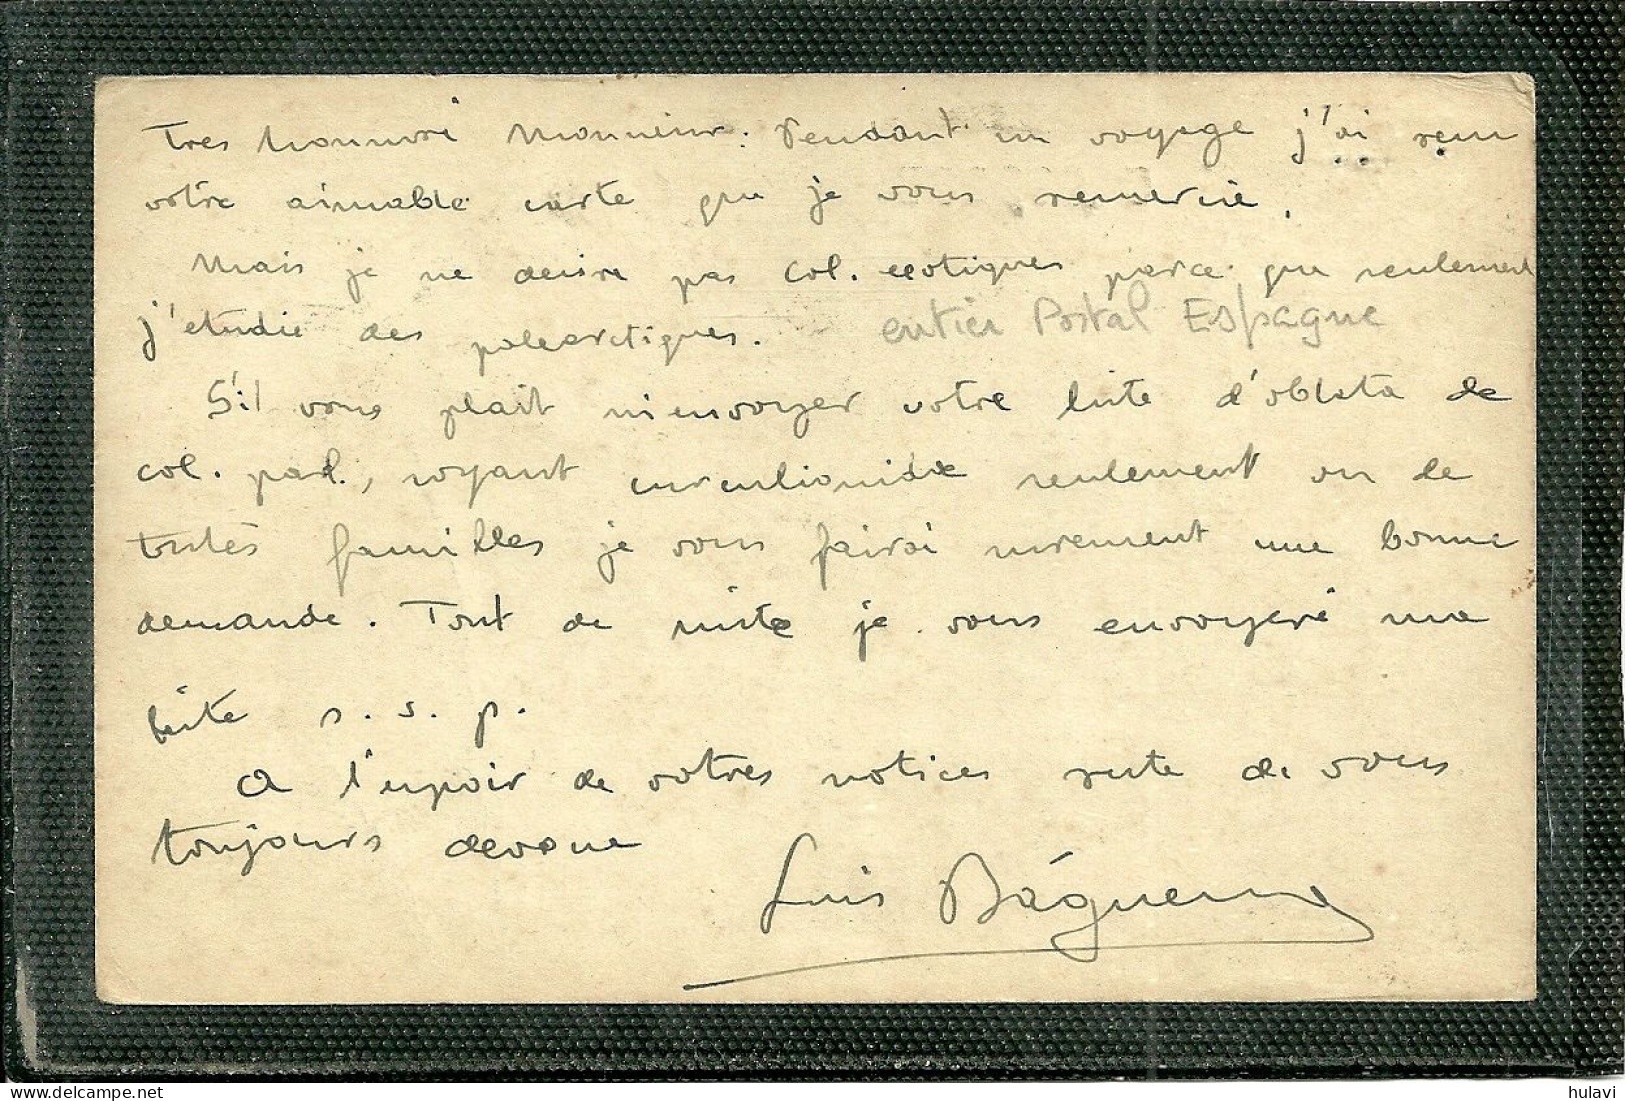 Tres honnoré Monsieur: Pendant un voyage j'ai reçu
votre aimable carte que je vous remercie.
Mais je ne desire pas col. exotiques parce que seulement
j'etudie des palearctiques.
entier Postal Espagne
S'il vous plait m'envoyer votre liste d'oblata de
col. pal., soyant curculionidae seulement ou de
toutes familles je vous fairai surement une bonne
demande. Tout de suite je vous envoyeré une
liste s. s. p.
A l'espoir de votres notices reste de vous
toujours devoue
Luis Báguena
hulavi